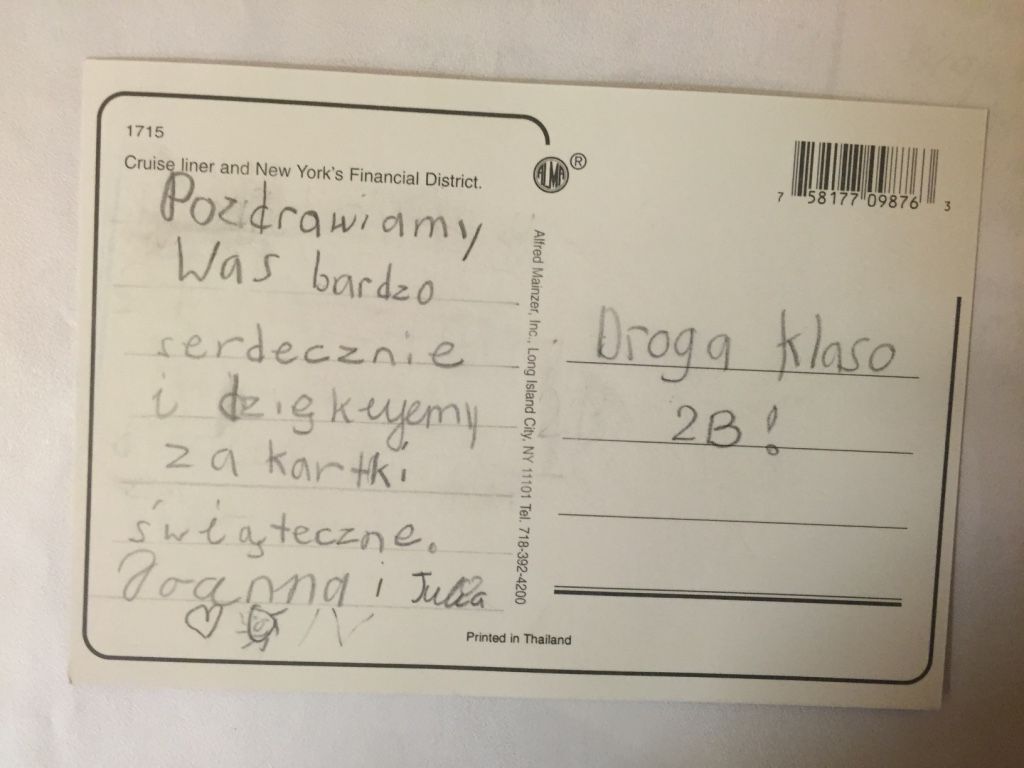 1715
Cruise liner and New York's Financial District.
Pozdrawiamy
Was bardzo
serdecznie
i dziękujemy
za kartki
świąteczne.
Joanna i Julia
ALMA ®
Alfred Mainzer, Inc., Long Island City, NY 11101 Tel. 718-392-4200
7 58177 09876 3
Droga klaso
2B!
Printed in Thailand